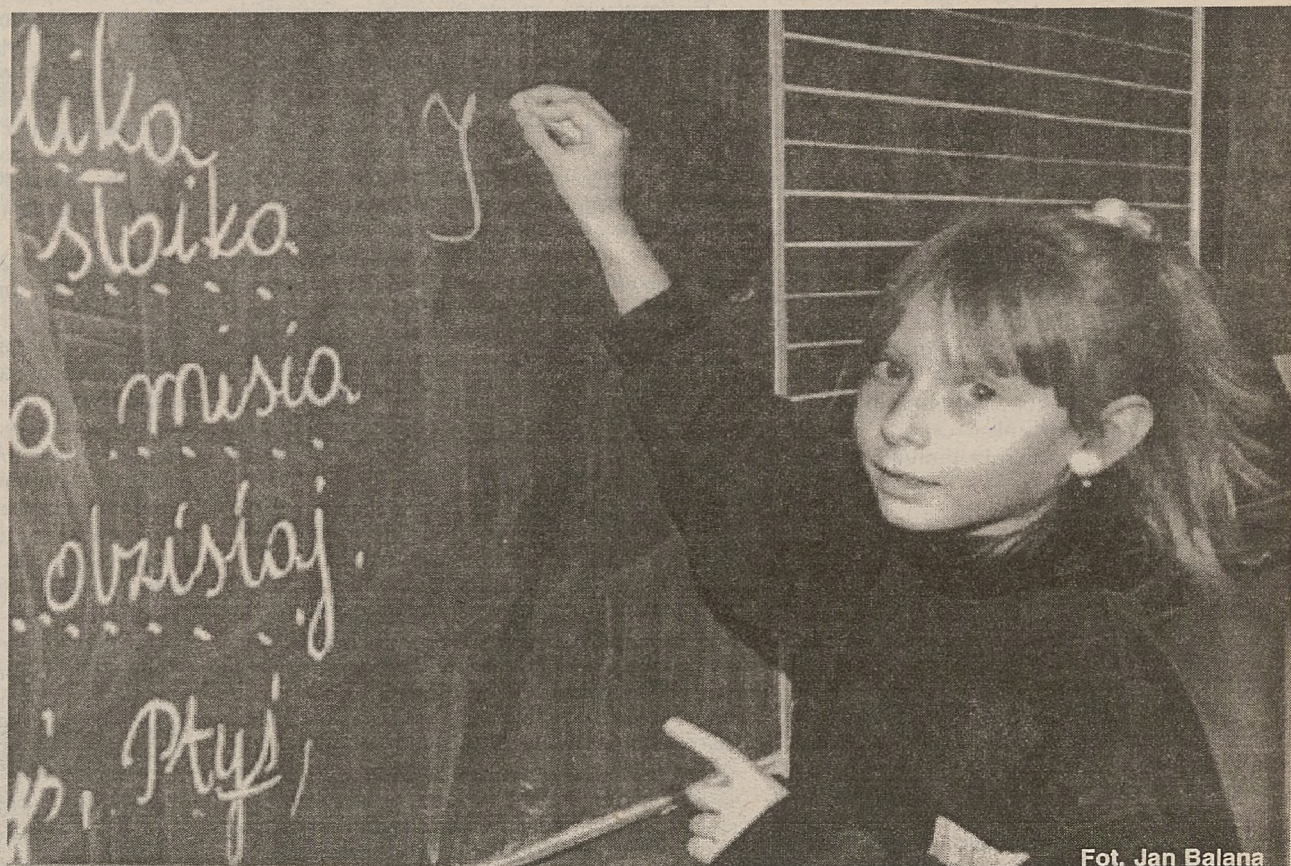 lika
słoika
a misia
dzisiaj.
Ptyś,
y
Fot. Jan Balana